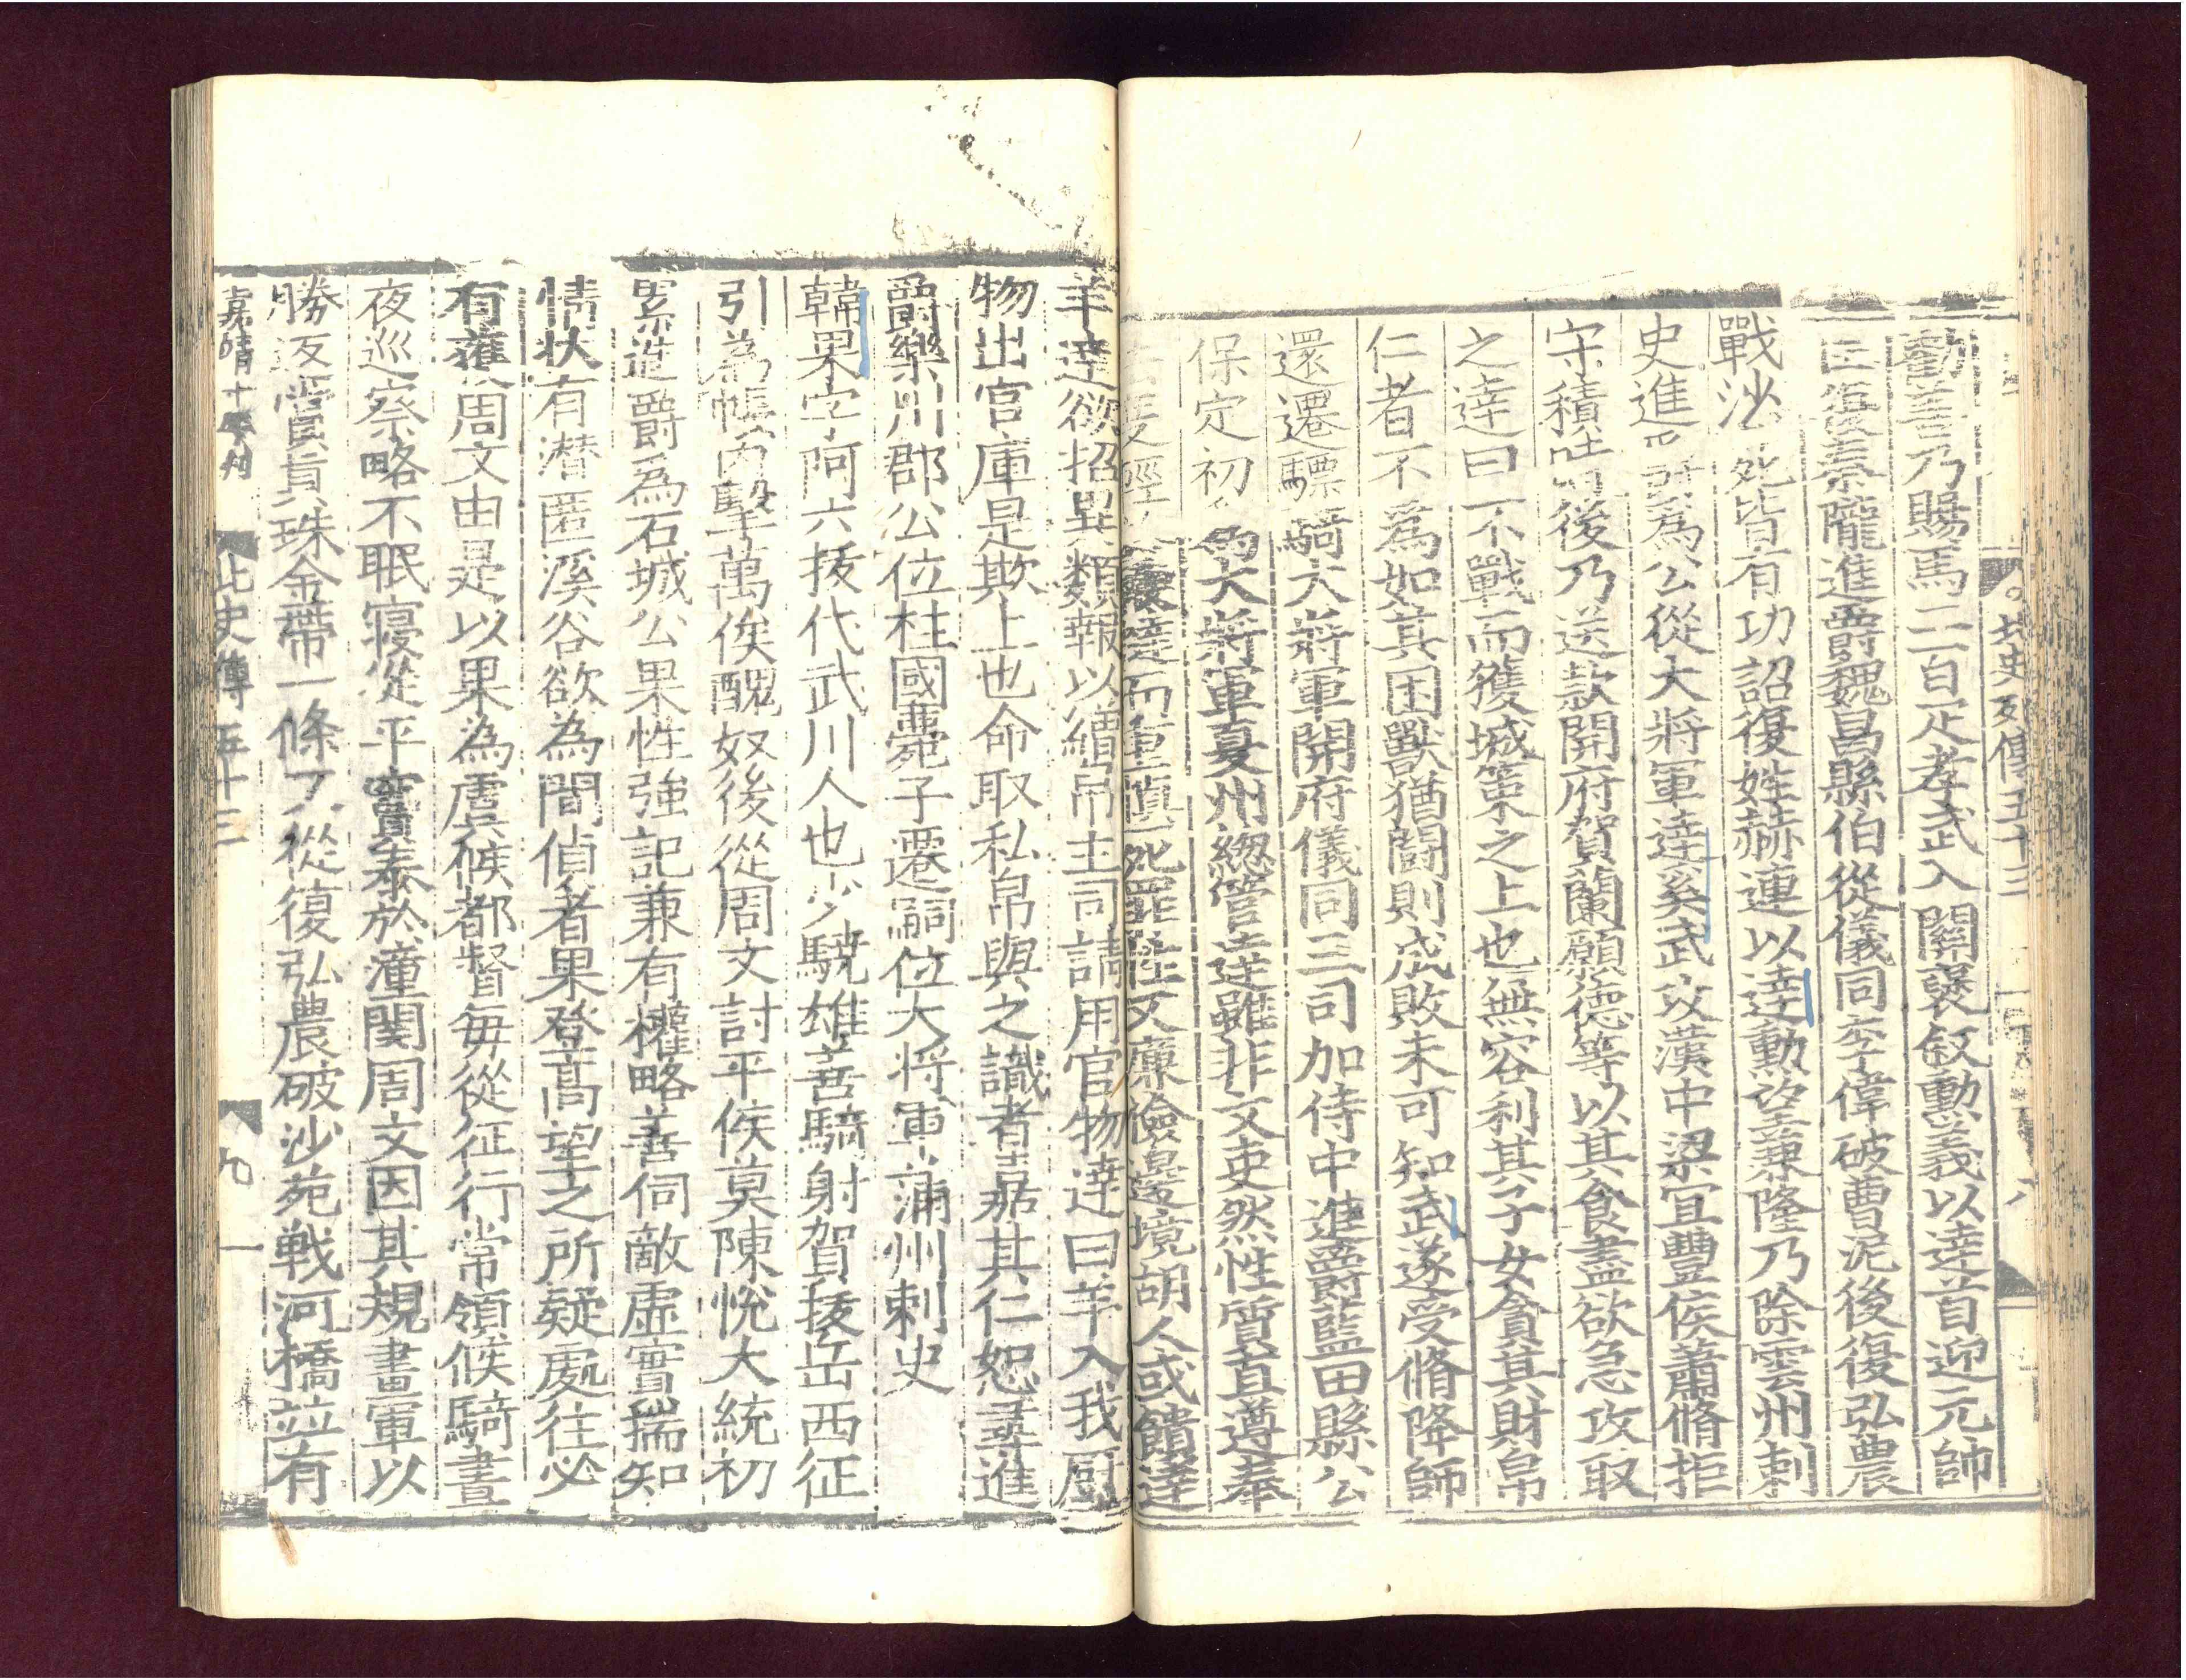 北史列傳五十三 八
勸善乃賜馬二百疋孝武入關襃叙勳義以達首迎元帥
匡復秦隴進爵魏昌縣伯從儀同李偉破曹泥後復弘農
戰沙 死皆有功詔復姓赫連以達勳望兼隆乃除雲州刺
史進 爵為公從大將軍達奚武攻漢中梁宜豐侯蕭脩拒
守積 後乃送款開府賀蘭願德等以其食盡欲急攻取
之達曰不戰而獲城策之上也無容利其子女貪其財帛
仁者不為如其困獸猶鬬則成敗未可知武遂受脩降師
還遷驃騎大將軍開府儀同三司加侍中進爵藍田縣公
保定初為大將軍夏州緫管達雖非文吏然性質直遵奉
而重慎死罪性又廉儉邊境胡人或饋達
羊達欲招異類報以繒帛主司請用官物達曰羊入我厨
物出官庫是欺上也命取私帛與之識者嘉其仁恕尋進
爵樂川郡公位柱國薨子遷嗣位大将軍蒲州刺史
韓果字阿六拔代武川人也少驍雄善騎射賀拔岳西征
引為帳内擊萬俟醜奴後從周文討平侯莫陳悅大統初
累進爵為石城公果性強記兼有權略善伺敵虛實揣知
情状有潜匿溪谷欲為間偵者果登髙望之所疑處往必
有獲周文由是以果為虞候都督每從征行常領候騎晝
夜巡察略不眠寢從平竇泰於潼関周文因其規畫軍以
勝返賞真珠金帶一條又從復弘農破沙苑戦河橋並有
嘉靖十年刊 北史傳五十三 九